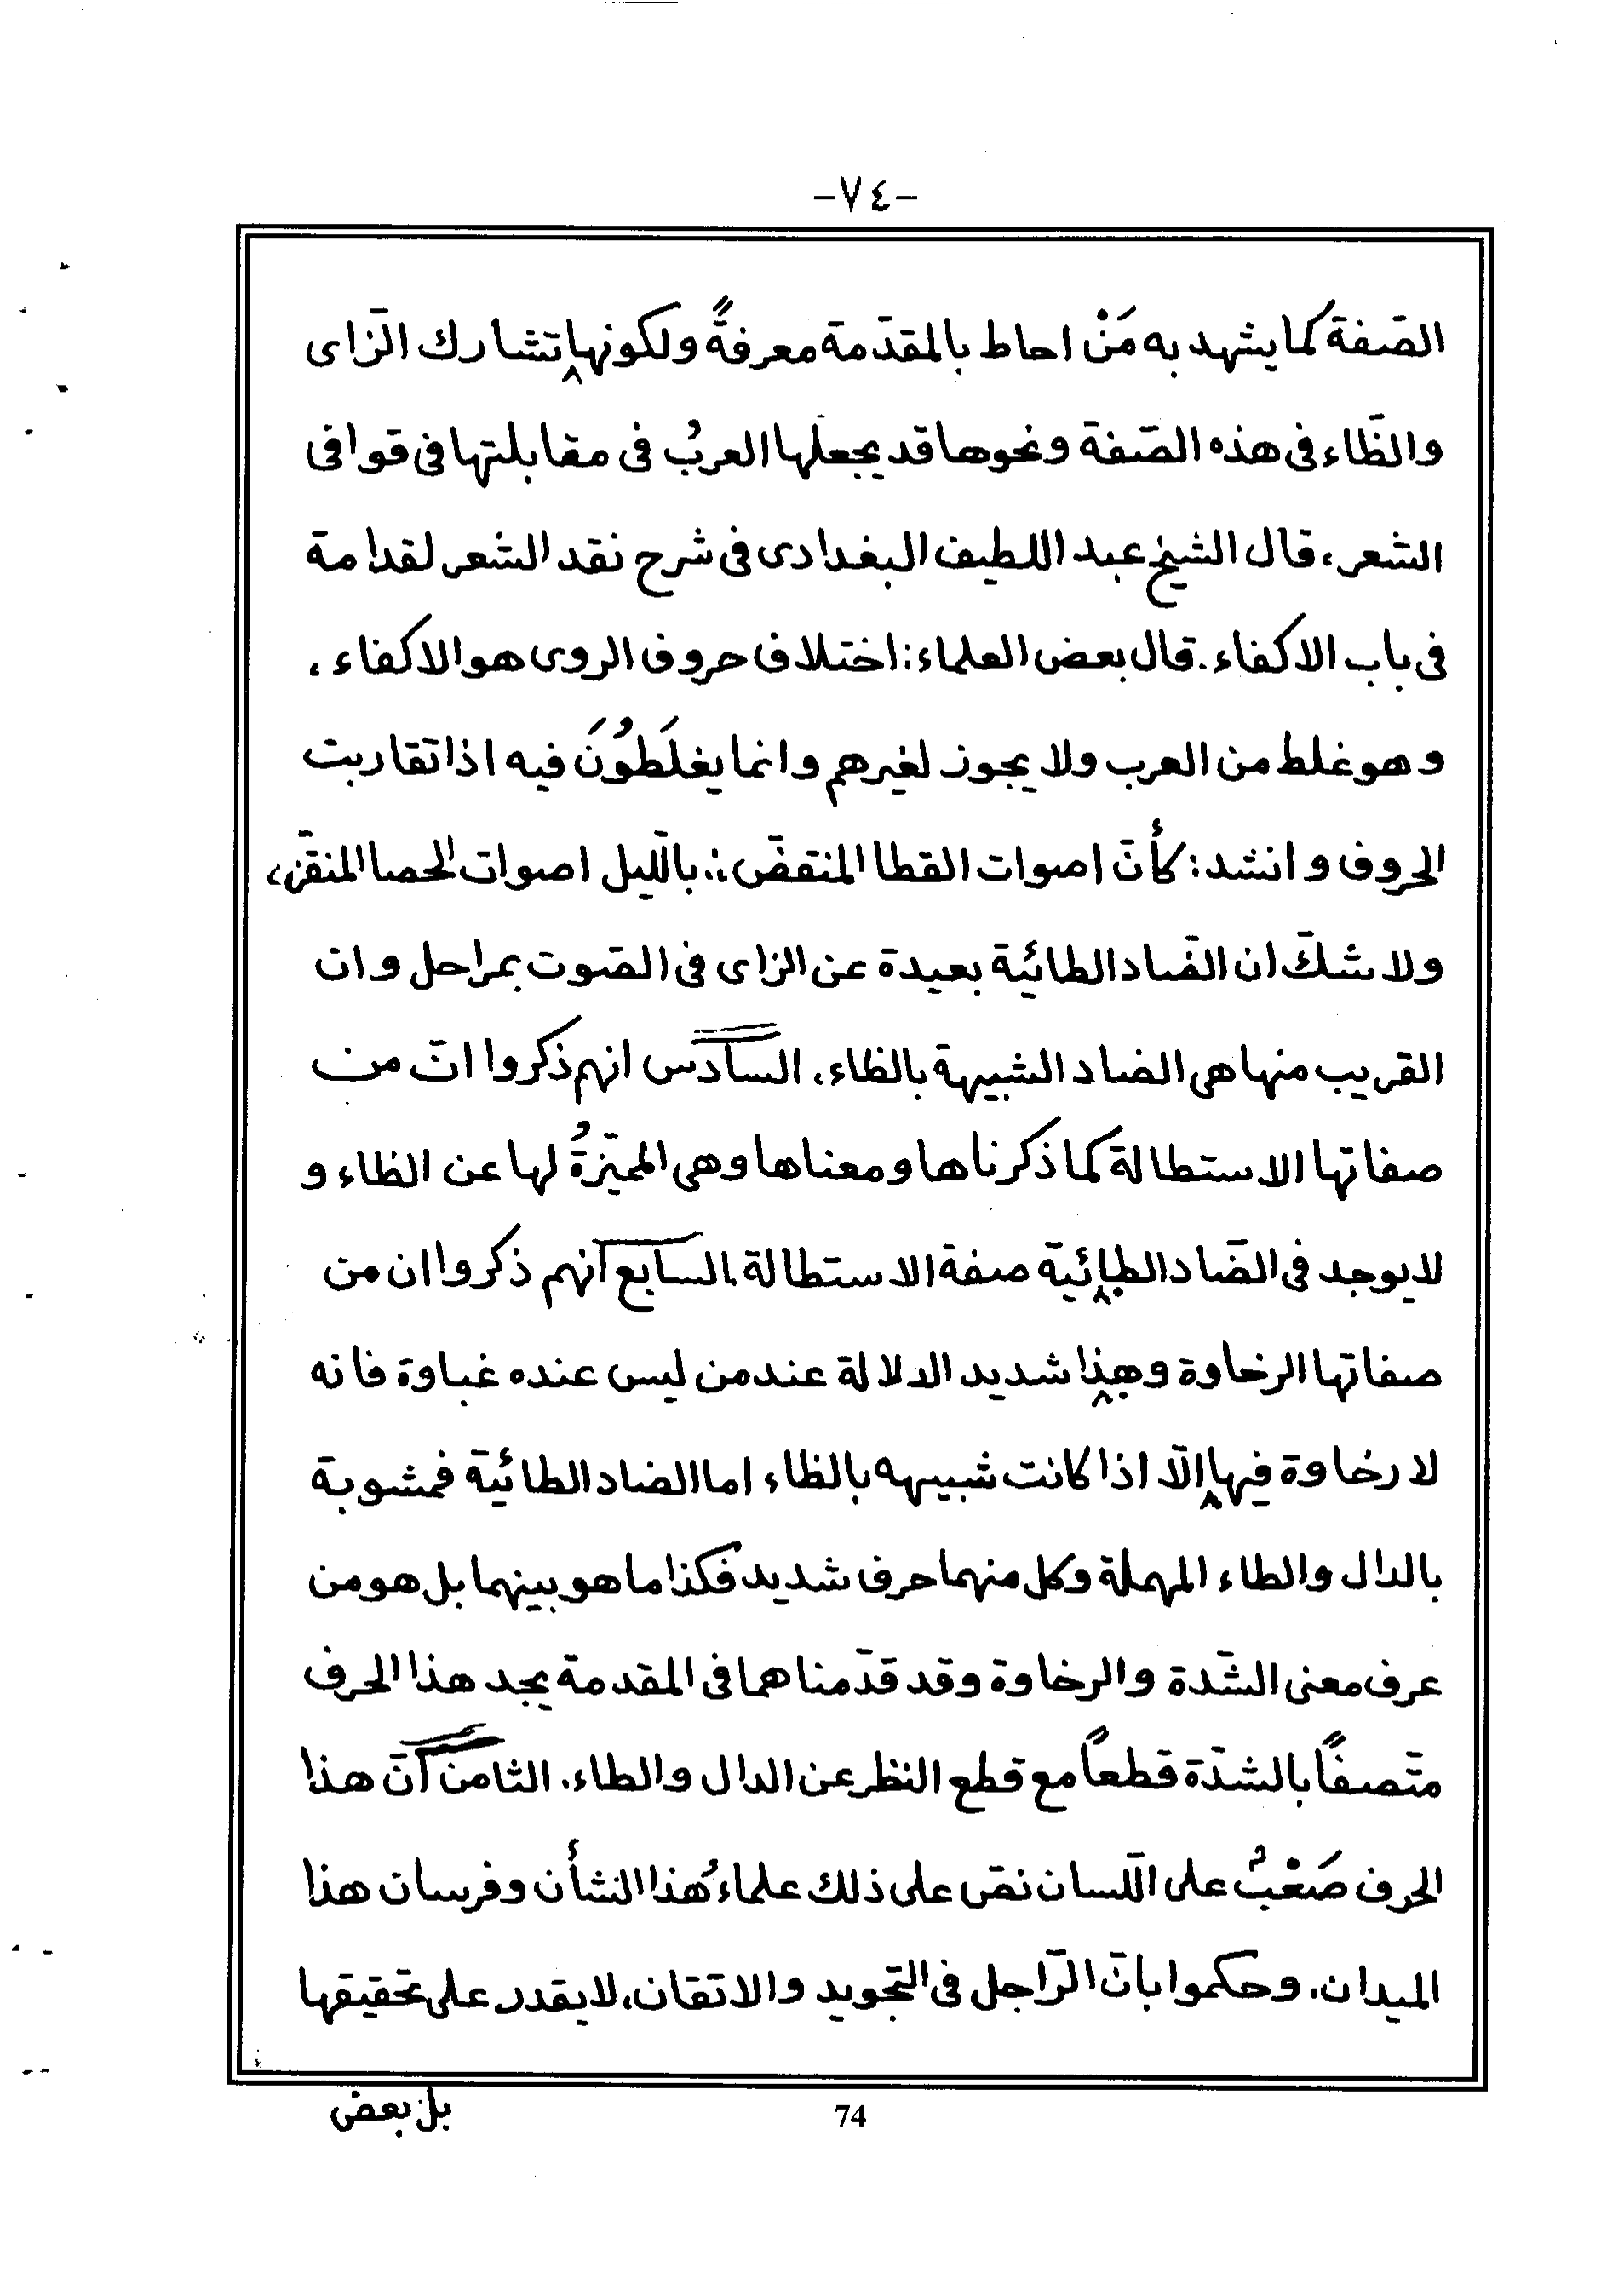 -٧٤-
الصّفة كما يشهد به مَنْ احاط بالمقدّمة معرفةً ولكونها تشارك الزّاى
والظّاء فى هذه الصّفة ونحوها قد يجعلها العربُ فى مقابلتها فى قوافى
الشعر، قال الشيخ عبد اللطيف البغدادى فى شرح نقد الشعر لقدامة
فى باب الاكفاء. قال بعض العلماء: اختلاف حروف الروى هو الاكفاء ،
وهو غلط من العرب ولا يجوز لغيرهم وانما يغلَطُونَ فيه اذا تقاربت
الحروف وانشد: كأنّ اصوات القطا المنقضّ :. بالّليل اصوات الحصا المنقزّ،
ولا شكّ ان الضّاد الطائيّة بعيدة عن الزاى فى الصّوت بمراحل وان
القريب منها هى الضاد الشبيهة بالظاء. السّادس انهم ذكروا انّ من
صفاتها الاستطالة كما ذكرناها ومعناها وهى المميّزةُ لها عن الظاء و
لا يوجد فى الضّاد الطائيّة صفة الاستطالة. السابع انهم ذكروا ان من
صفاتها الرخاوة وهذا شديد الدلالة عند من ليس عنده غباوة فانه
لا رخاوة فيها الّا اذا كانت شبيهه بالظاء اما الضاد الطائيّة فمشوبة
بالدال والطاء المهملة وكل منهما حرف شديد فكذا ما هو بينهما بل هو من
عرف معنى الشّدة والرخاوة وقد قدّمناهما فى المقدمة يجد هذا الحرف
متّصفًا بالشدّة قطعًا مع قطع النظر عن الدال والطاء. الثامن انّ هذا
الحرف صَعْبٌ على اللّسان نصّ على ذلك علماءُ هذا الشأن وفرسان هذا
الميدان. وحكموا بانّ الرّاجل فى التجويد والاتقان، لا يقدر على تحقيقها
بل بعض
74